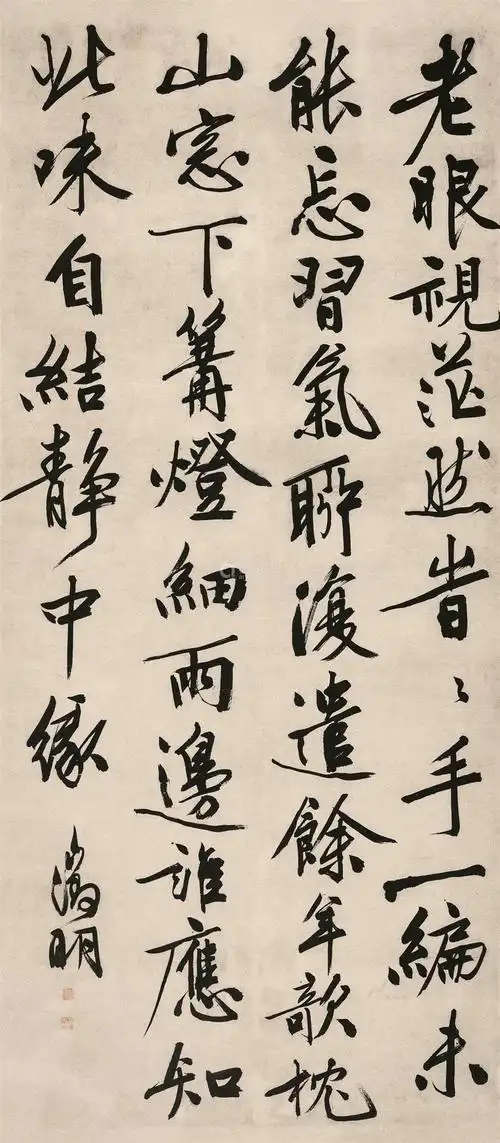 老眼視茫然旹〻手一編未
能忘習氣聊復遣餘年欹枕
山窓下篝燈細雨邊誰應知
此味自結静中緣
徵明